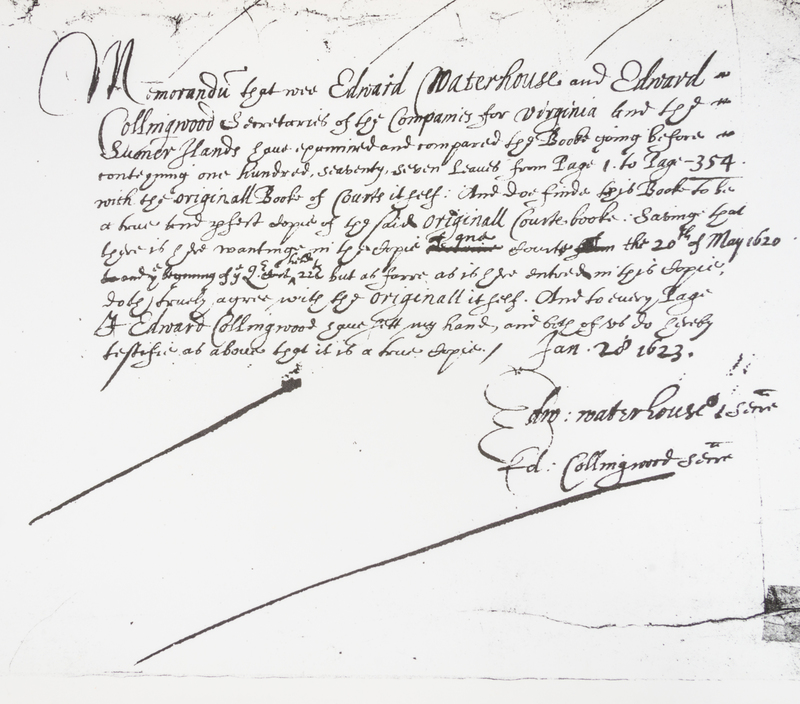 Memorandū that wee Edward Waterhouse and Edward
Collingwood Secretaries of the Companies for Virginia and the
Sumer Ilands have examined and compared the Booke going before
conteyning one hundred, seaventy, seven Leaves from Page 1. to Page 354.
with the originall Booke of Courts itself: And doe finde this Booke to be
a true and pfect Copie of the said originall Courte booke: Saving that
there is here wanting in the Copie one Courte the 20th of May 1620
and ye begining of ye 22th but as farre as is here entred in this Copie,
doth truely agree with the originall itself. And to every Page
I Edward Collingwood have sett my hand, and both of us do hereby
testifie as above that it is a true Copie./ Jan. 28 1623.
Edw: Waterhouse Secre
Ed: Collingwood Secre